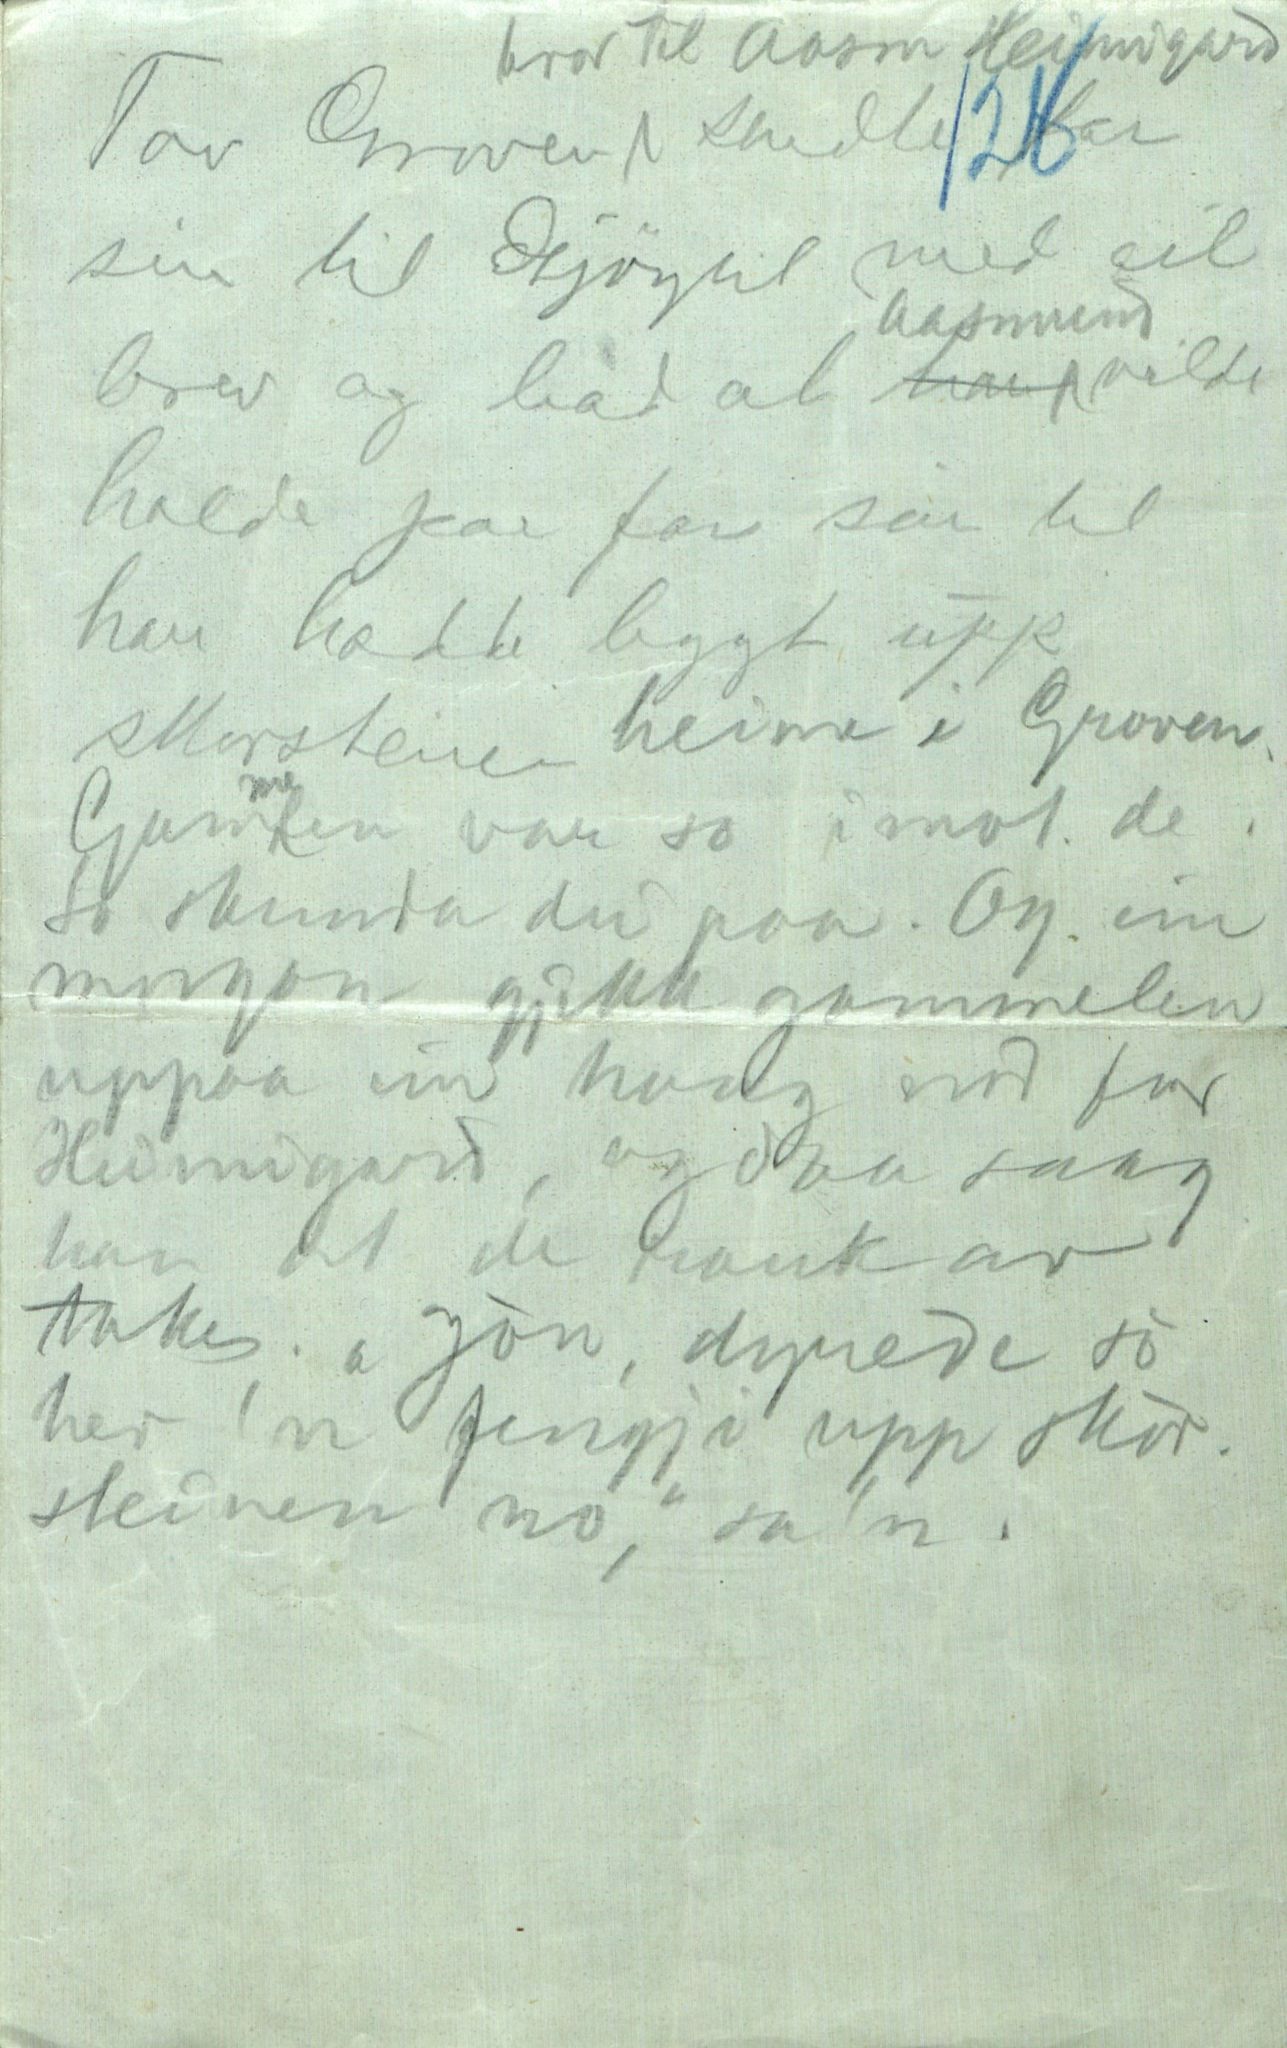 bror til Aasm Heimigard
126
Tov Groven sendte far
sin til Høgtil med eit
Aasmund
brev og bad at han vilde
halde paa far sin til
han hadde byggt upp
skorsteinen heime i Groven.
Gammelen var so imot de.
So skunda dei paa. Og ein
morgon gjekk gammelen
uppaa ein haug nord for
Heimigard, og daa saag
han at de rauk av
taket. "Jön, dyrede so
her 'n fengji upp skor-
steinen no," sa 'n.